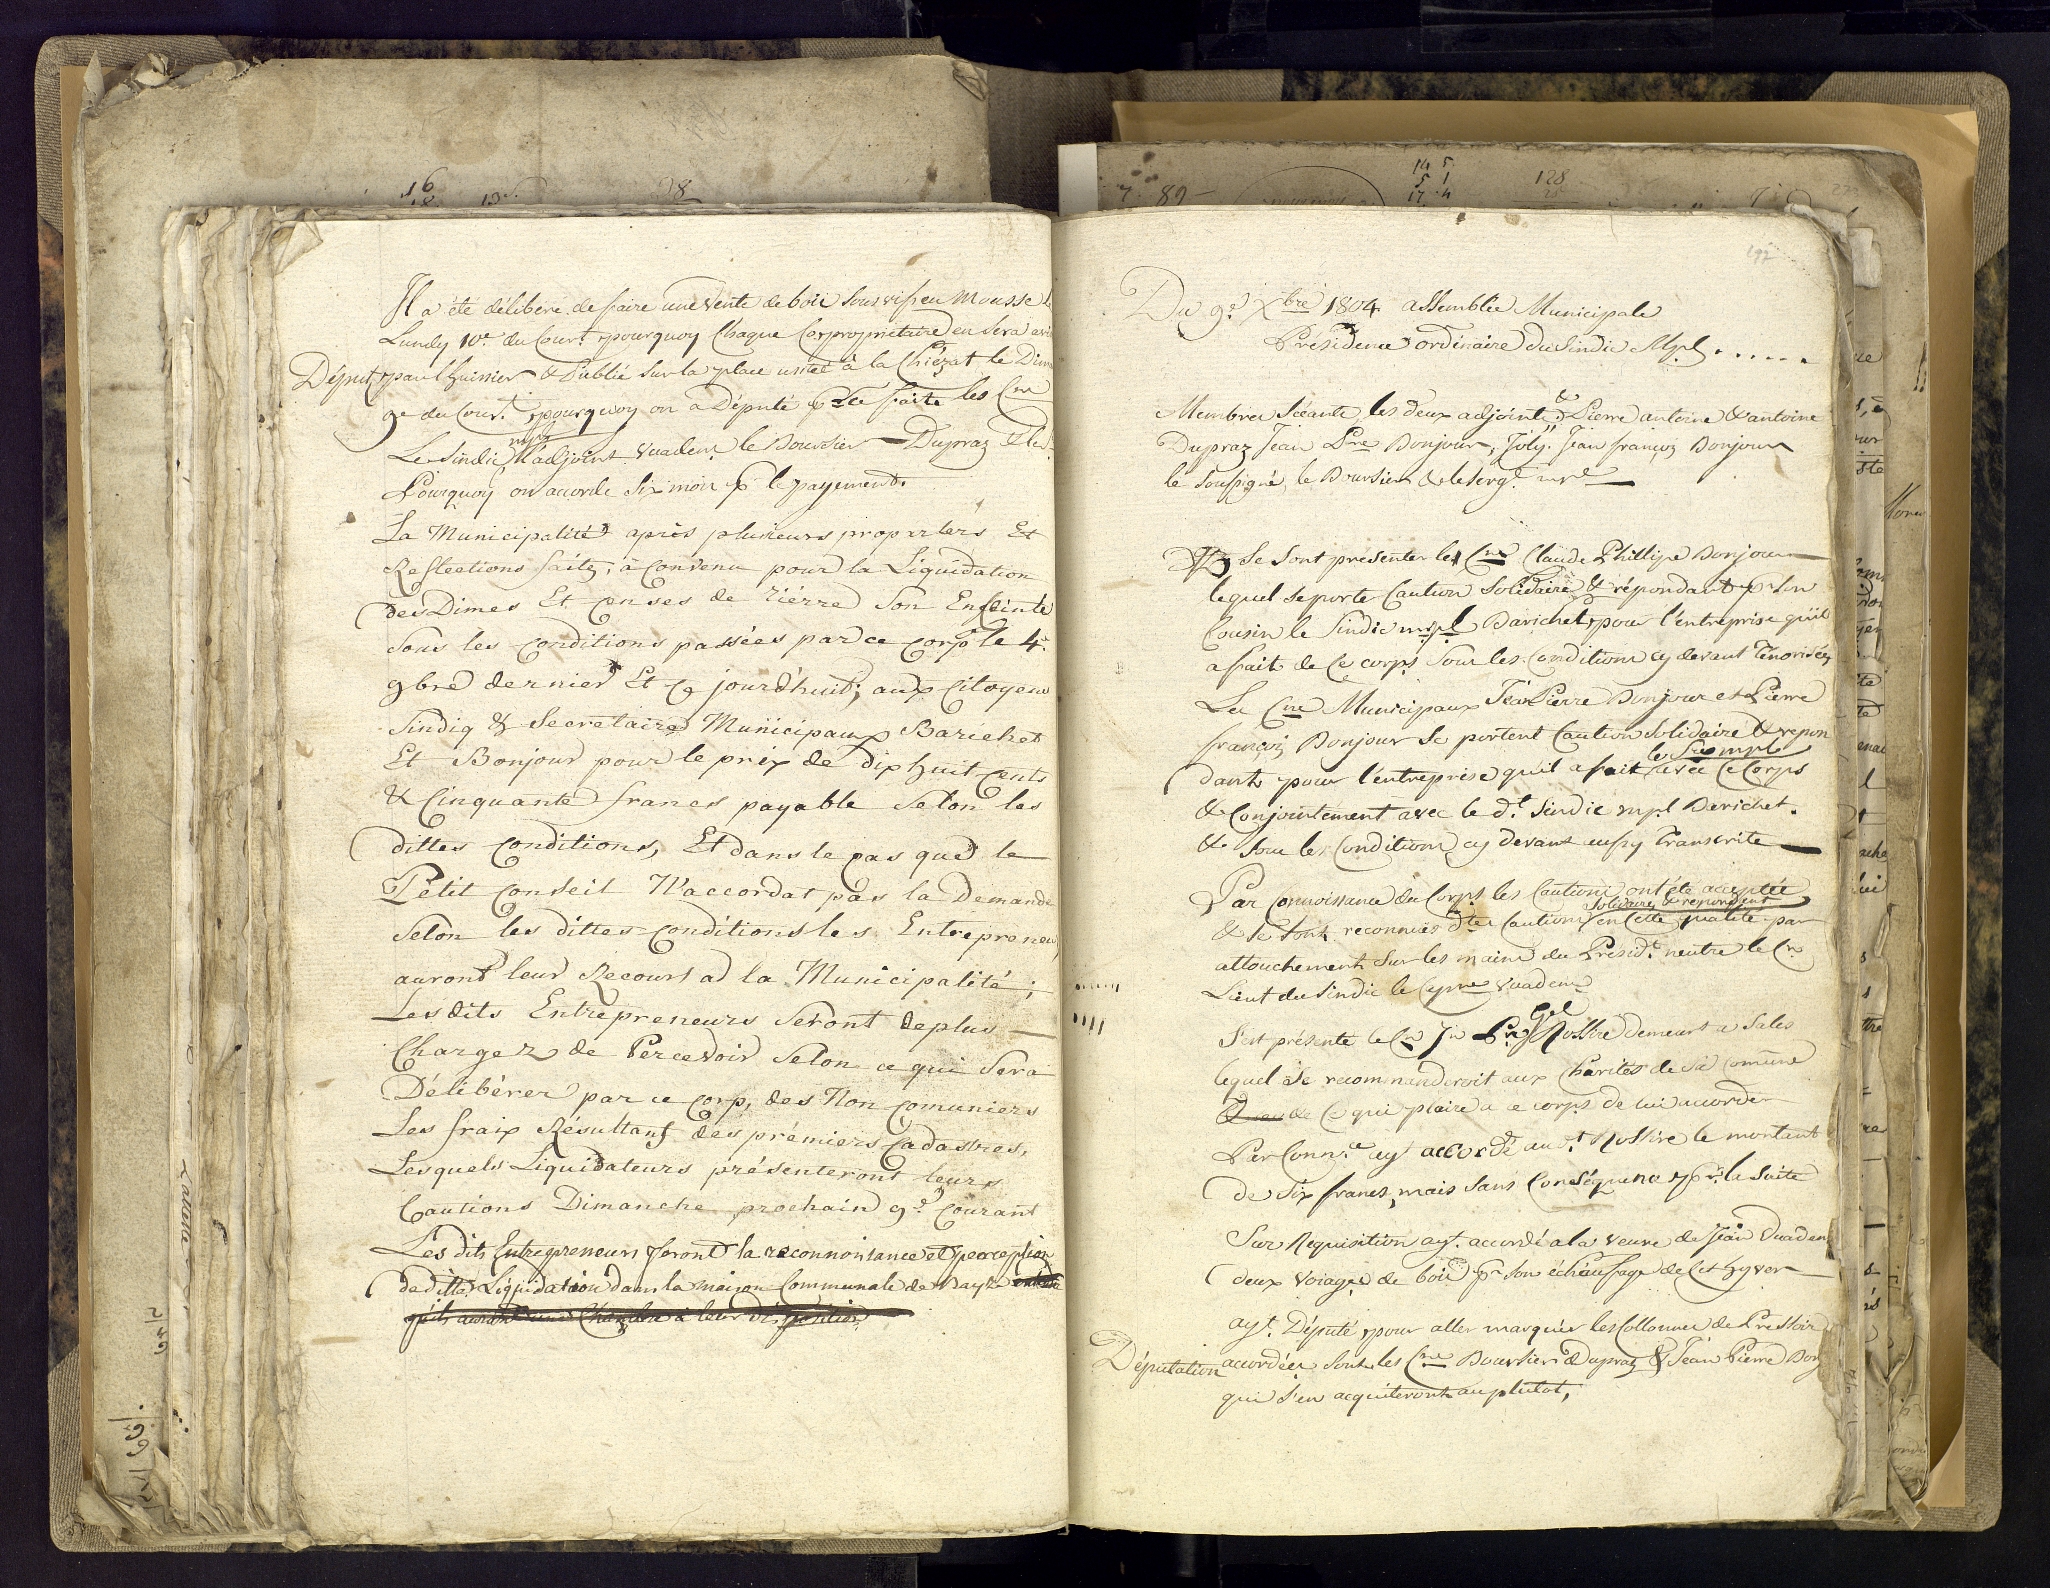 Il a été délibéré de faire une vente de bois sous vis en Mousse
Lundy 10e du Cour.t pourquoy Chaque Coproprietaire en Sera
Déput. par l'huissier & Publié Sur la place usitée à la Chiézat le Dim
9e du Cour.t pourquoy on a Député pr Ce faite les Cns
Le Sindic mpl l'adjoint Vuadens le Boursier Dupraz & le
Pourquoy on accorde Six mois pr le payement.
La Municipalité après plusieurs proparlers Et
Reflections faites, à Convenu pour la Liquidation
des Dimes Et Censes de Tiérre Son Enseinte
Sous les Conditions passées par ce Corps le 4e
9bre dernier Et Ce jourd'huit; aux Citoyens
Sindiq & Secretaire Municipaux Barichet
Et Bonjour pour le prix de dix huit cents
& Cinquante francs payable Selon les
dittes Conditions, Et dans le cas que le
Petit Conseil N'accordat pas la Demande
Selon les dittes Conditions les Entrepreneu
auront leur Recours à la Municipalité;
Les dits Entrepreneurs Seront deplus
Chargez de Percevoir Selon ce qui Sera
Délibérer par ce Corp, des Non Comuniers
Les fraix Résultant des prémiers Cadastres,
Lesquels Liquidateurs présenteront leurs
Cautions Dimanche prochain 9e Courant
Les dits Entrepreneurs feront la reconnoissance et perception
de ditte Liquidation dans la maison Communale de
qu'ils auront une Chambre à leur disposition
192
Du 9e Xbre 1804 assemblée Municipale
Présidence ordinaire du Sindic Mpl
Membres Séants les deux adjoints & Pierre antoine & antoine
Dupraz Jean Pre Bonjour, Joly. Jean françois Bonjour
le Soussigné, le Boursier & le Sergt mpl
Se Sont presenter les Cns Claude Phillipe Bonjour
lequel Se porte Caution Solidaire & répondant pr Son
Cousin le Sindic mpl Barichet pour l'entreprise qu'il
a fait de Ce corps Sous les Conditions cy devant Ténorisées
Les Cns Municipaux Jean Pierre Bonjour et Pierre
françois Bonjour Se portent Caution Solidaire & repon
le Sre mpl
dants pour l'entreprise qu'il a fait avec Ce Corps
& Conjointement avec le dt Sindic mpl Berichet.
& Sous les Conditions cy devant ausy Transcrite
Par Connoissance du Corps les Cautions ont été acceptée
Solidaires & repondent
& Se Sont reconnues dtes Cautions en Cette qualité par
attouchement Sur les mains du Présidt neutre le Cn
Lieut du Sindic le Vuadens
Gel
S'est présenté le Cn Jn Pre Rossire demeurt a Sales
lequel Se recommanderoit aux Charités de Sa Comune
de Ce qui plaire a ce corps de lui accorder
Par Conn.ce ayt accordé au dt Rossire le montant
de Six francs, mais Sans Conséquence pr la Suite
Sur Requisition ayt accordé a la veuve de Jean Vuadens
deux voiages de bois pr Son échaufage de Cet hyver
ayt Député pour aller marquer les Collonnes de Pressoir
Députation accordées Sont les Cns Boursier Dupraz & Jean Pierre Bonj
qui S'en acquiteront au plutot,